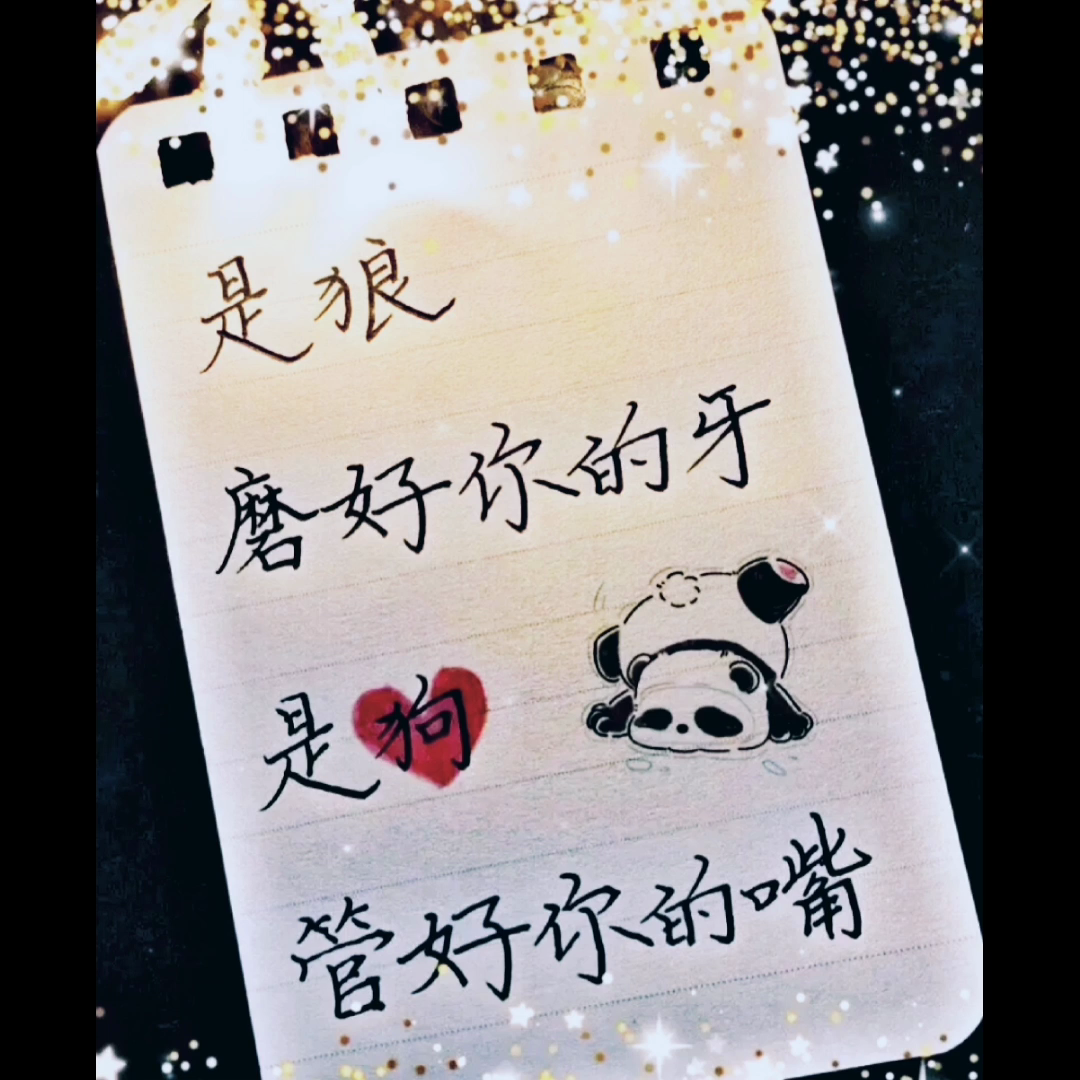 是狼
磨好你的牙
是狗
管好你的嘴